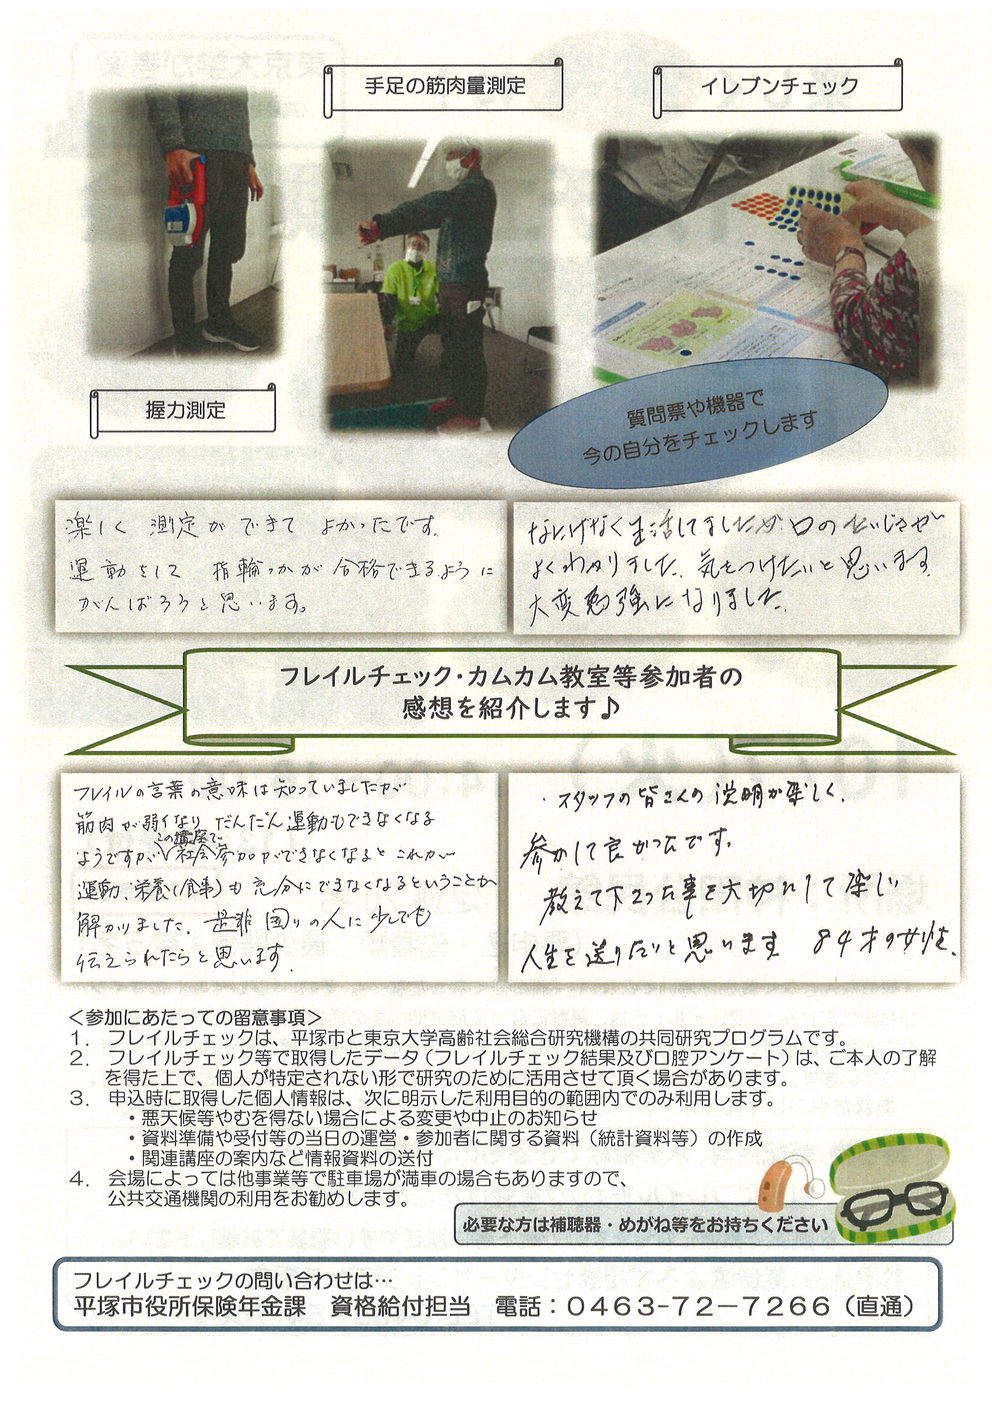 手足の筋肉量測定
イレブンチェック
握力測定
質問票や機器で
今の自分をチェックします
楽しく 測定ができて よかったです。
運動をして 指輪っかが 合格できるように
がんばろうと思います。
なにげなく生活してましたが 口の たいじさが
よくわかりました。気をつけたいと思います。
大変勉強になりました。
フレイルチェック・カムカム教室等参加者の
感想を紹介します♪
フレイルの言葉の意味は知っていましたが
筋肉が弱くなり だんだん運動もできなくなる
この講座で、
ようですが、社会参加ができなくなると これが
運動、栄養(食事)も 充分にできなくなるということが
解かりました。是非 回りの人に少しでも
伝えられたらと思います。
・スタッフの皆さんの説明が楽しく、
参加して良かったです。
教えて下さった事を大切にして楽しい
人生を送りたいと思います 84才の女性。
＜参加にあたっての留意事項＞
1． フレイルチェックは、平塚市と東京大学高齢社会総合研究機構の共同研究プログラムです。
2． フレイルチェック等で取得したデータ（フレイルチェック結果及び口腔アンケート）は、ご本人の了解
を得た上で、個人が特定されない形で研究のために活用させて頂く場合があります。
3． 申込時に取得した個人情報は、次に明示した利用目的の範囲内でのみ利用します。
・悪天候等やむを得ない場合による変更や中止のお知らせ
・資料準備や受付等の当日の運営・参加者に関する資料（統計資料等）の作成
・関連講座の案内など情報資料の送付
4． 会場によっては他事業等で駐車場が満車の場合もありますので、
公共交通機関の利用をお勧めします。
必要な方は補聴器・めがね等をお持ちください
フレイルチェックの問い合わせは…
平塚市役所保険年金課 資格給付担当 電話：０４６３-７２－７２６６（直通）